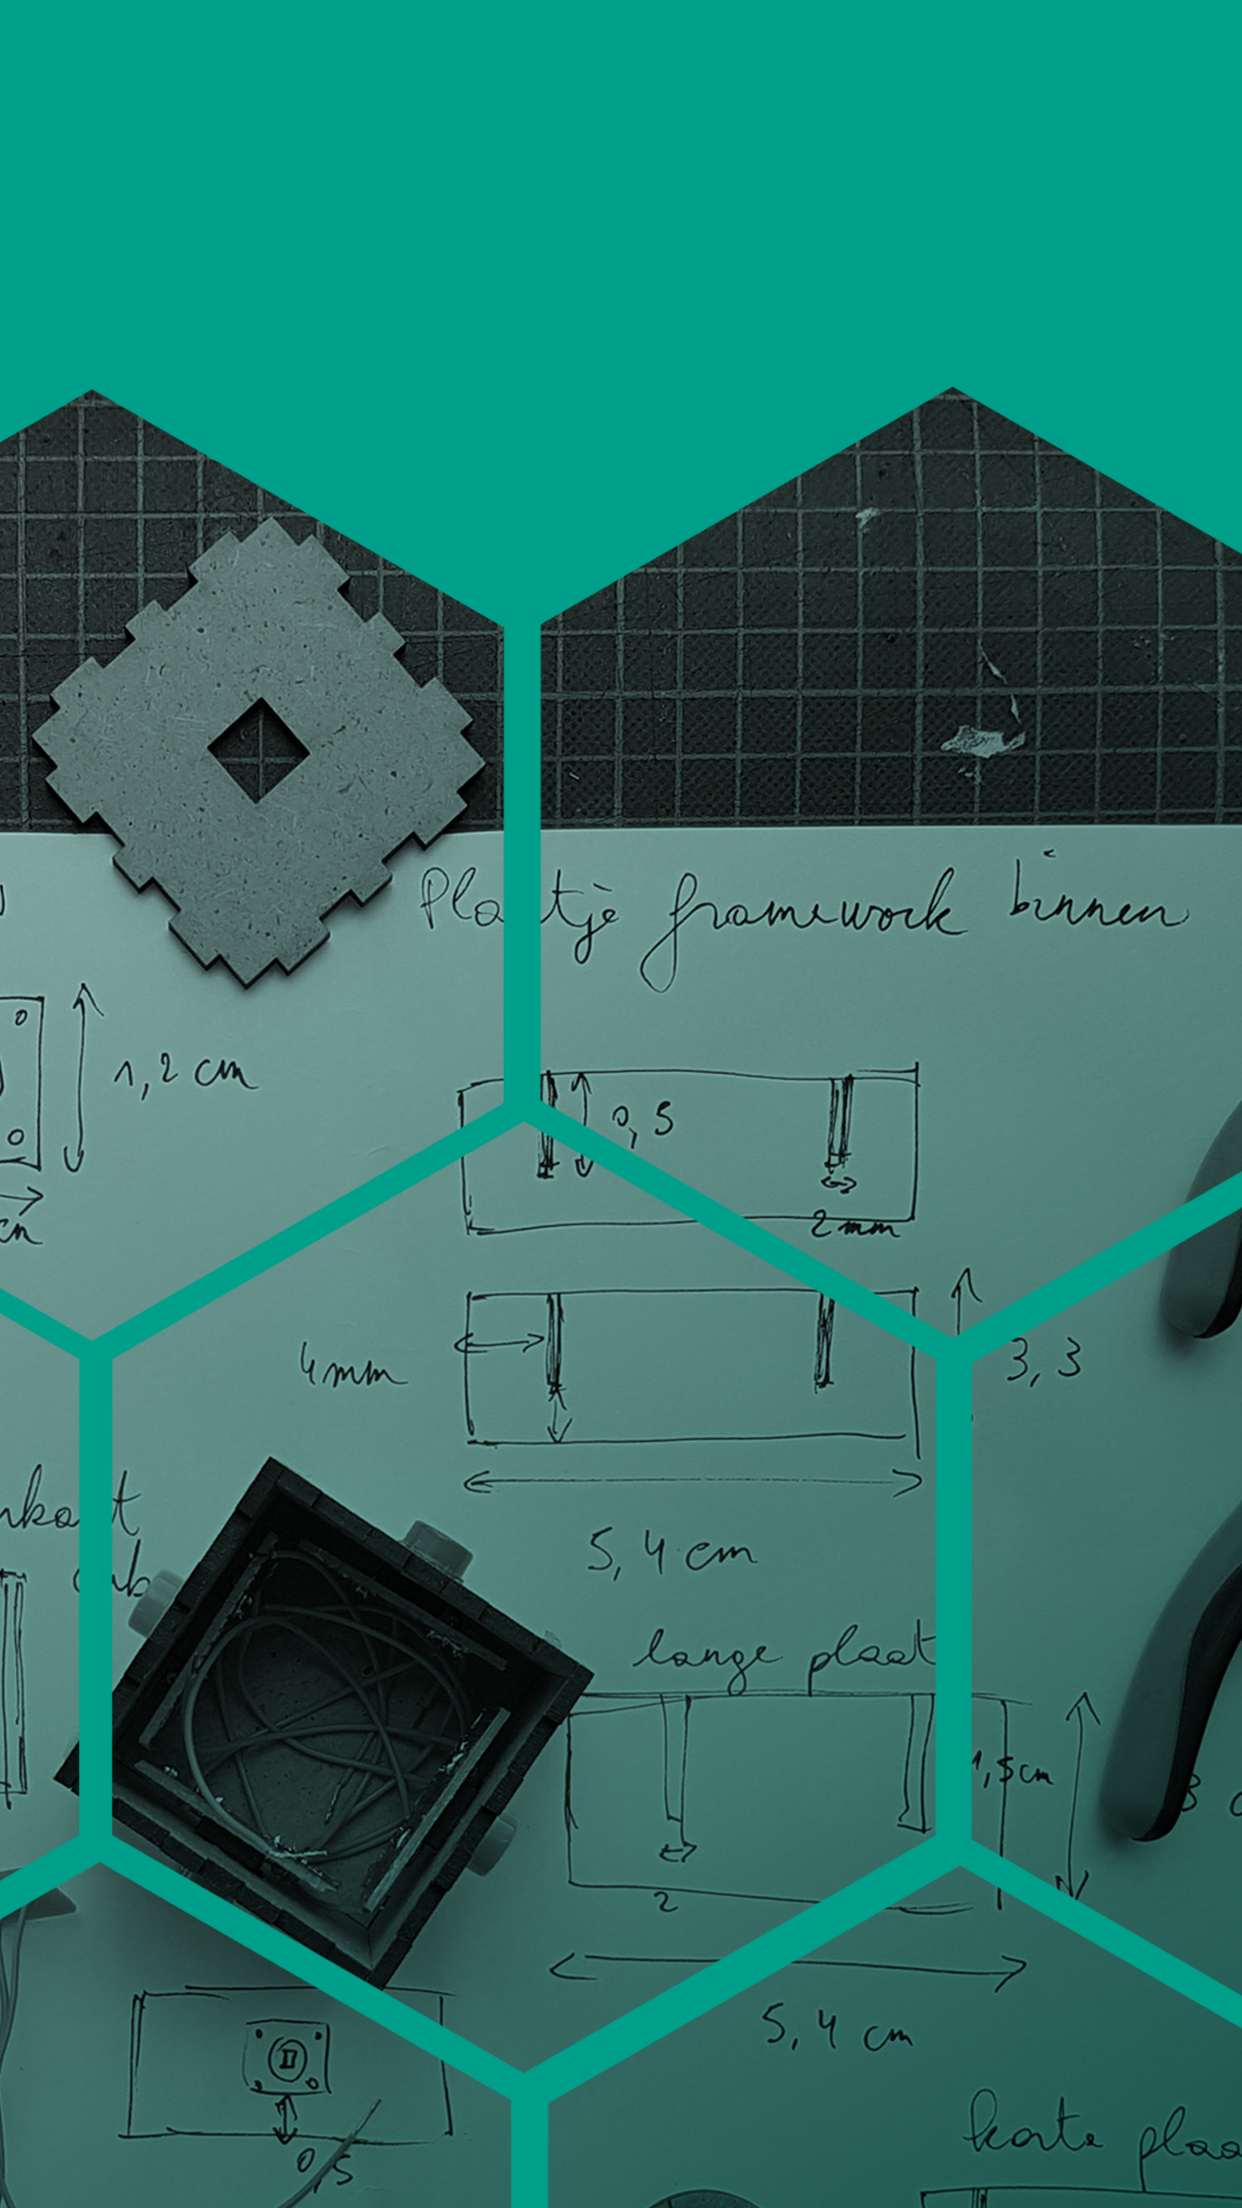 Plaatje framework binnen
1,2 cm
0,5
2 mm
4mm
3,3
5,4 cm
lange plaat
1,5cm
2
5,4 cm
0,5
korte plaa